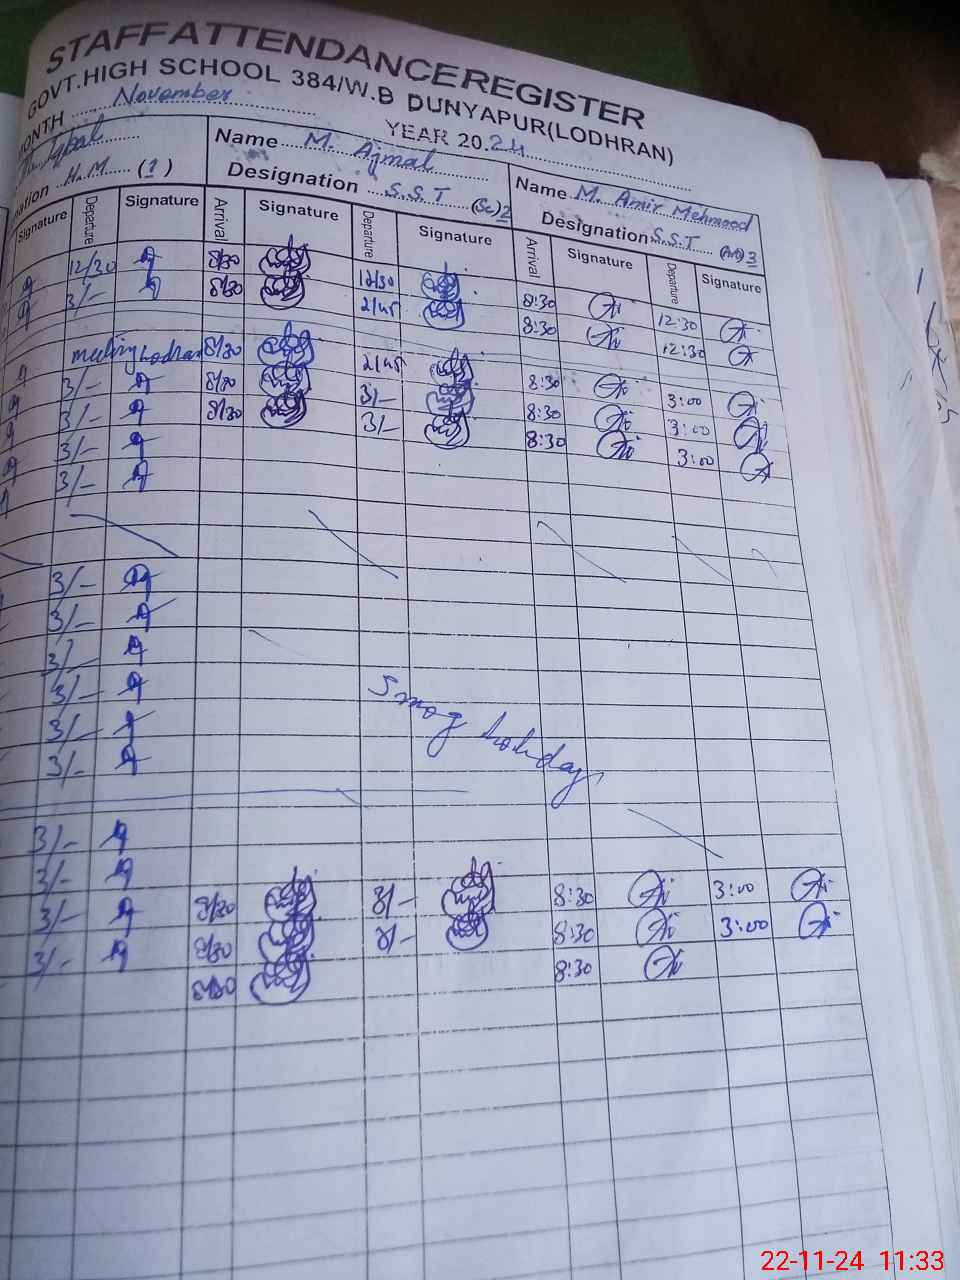 STAFF ATTENDANCE REGISTER
GOVT.HIGH SCHOOL 384/W.B DUNYAPUR(LODHRAN)
MONTH November YEAR 2024
Iqbal Name M. Ajmal Name M. Amir Mehmood
H.M (1) Designation S.S.T (Sc) 2 Designation S.S.T 3
Signature Departure Signature Arrival Signature Departure Signature Arrival Signature Departure Signature
12/30 8/30 12/30 8:30 12:30
3/- 8/30 2/45 8:30 12:30
meeting Lodhran 8/30 2/45 8:30 3:00
3/- 8/30 3/- 8:30 3:00
3/- 8/30 3/- 8:30 3:00
3/-
3/-
3/-
3/-
3/
3/-
3/-
3/-
Smog holiday
3/-
3/-
3/- 8/30 3/- 8:30 3:00
3/- 8/30 3/- 8:30 3:00
8/30 8:30
22-11-24 11:33